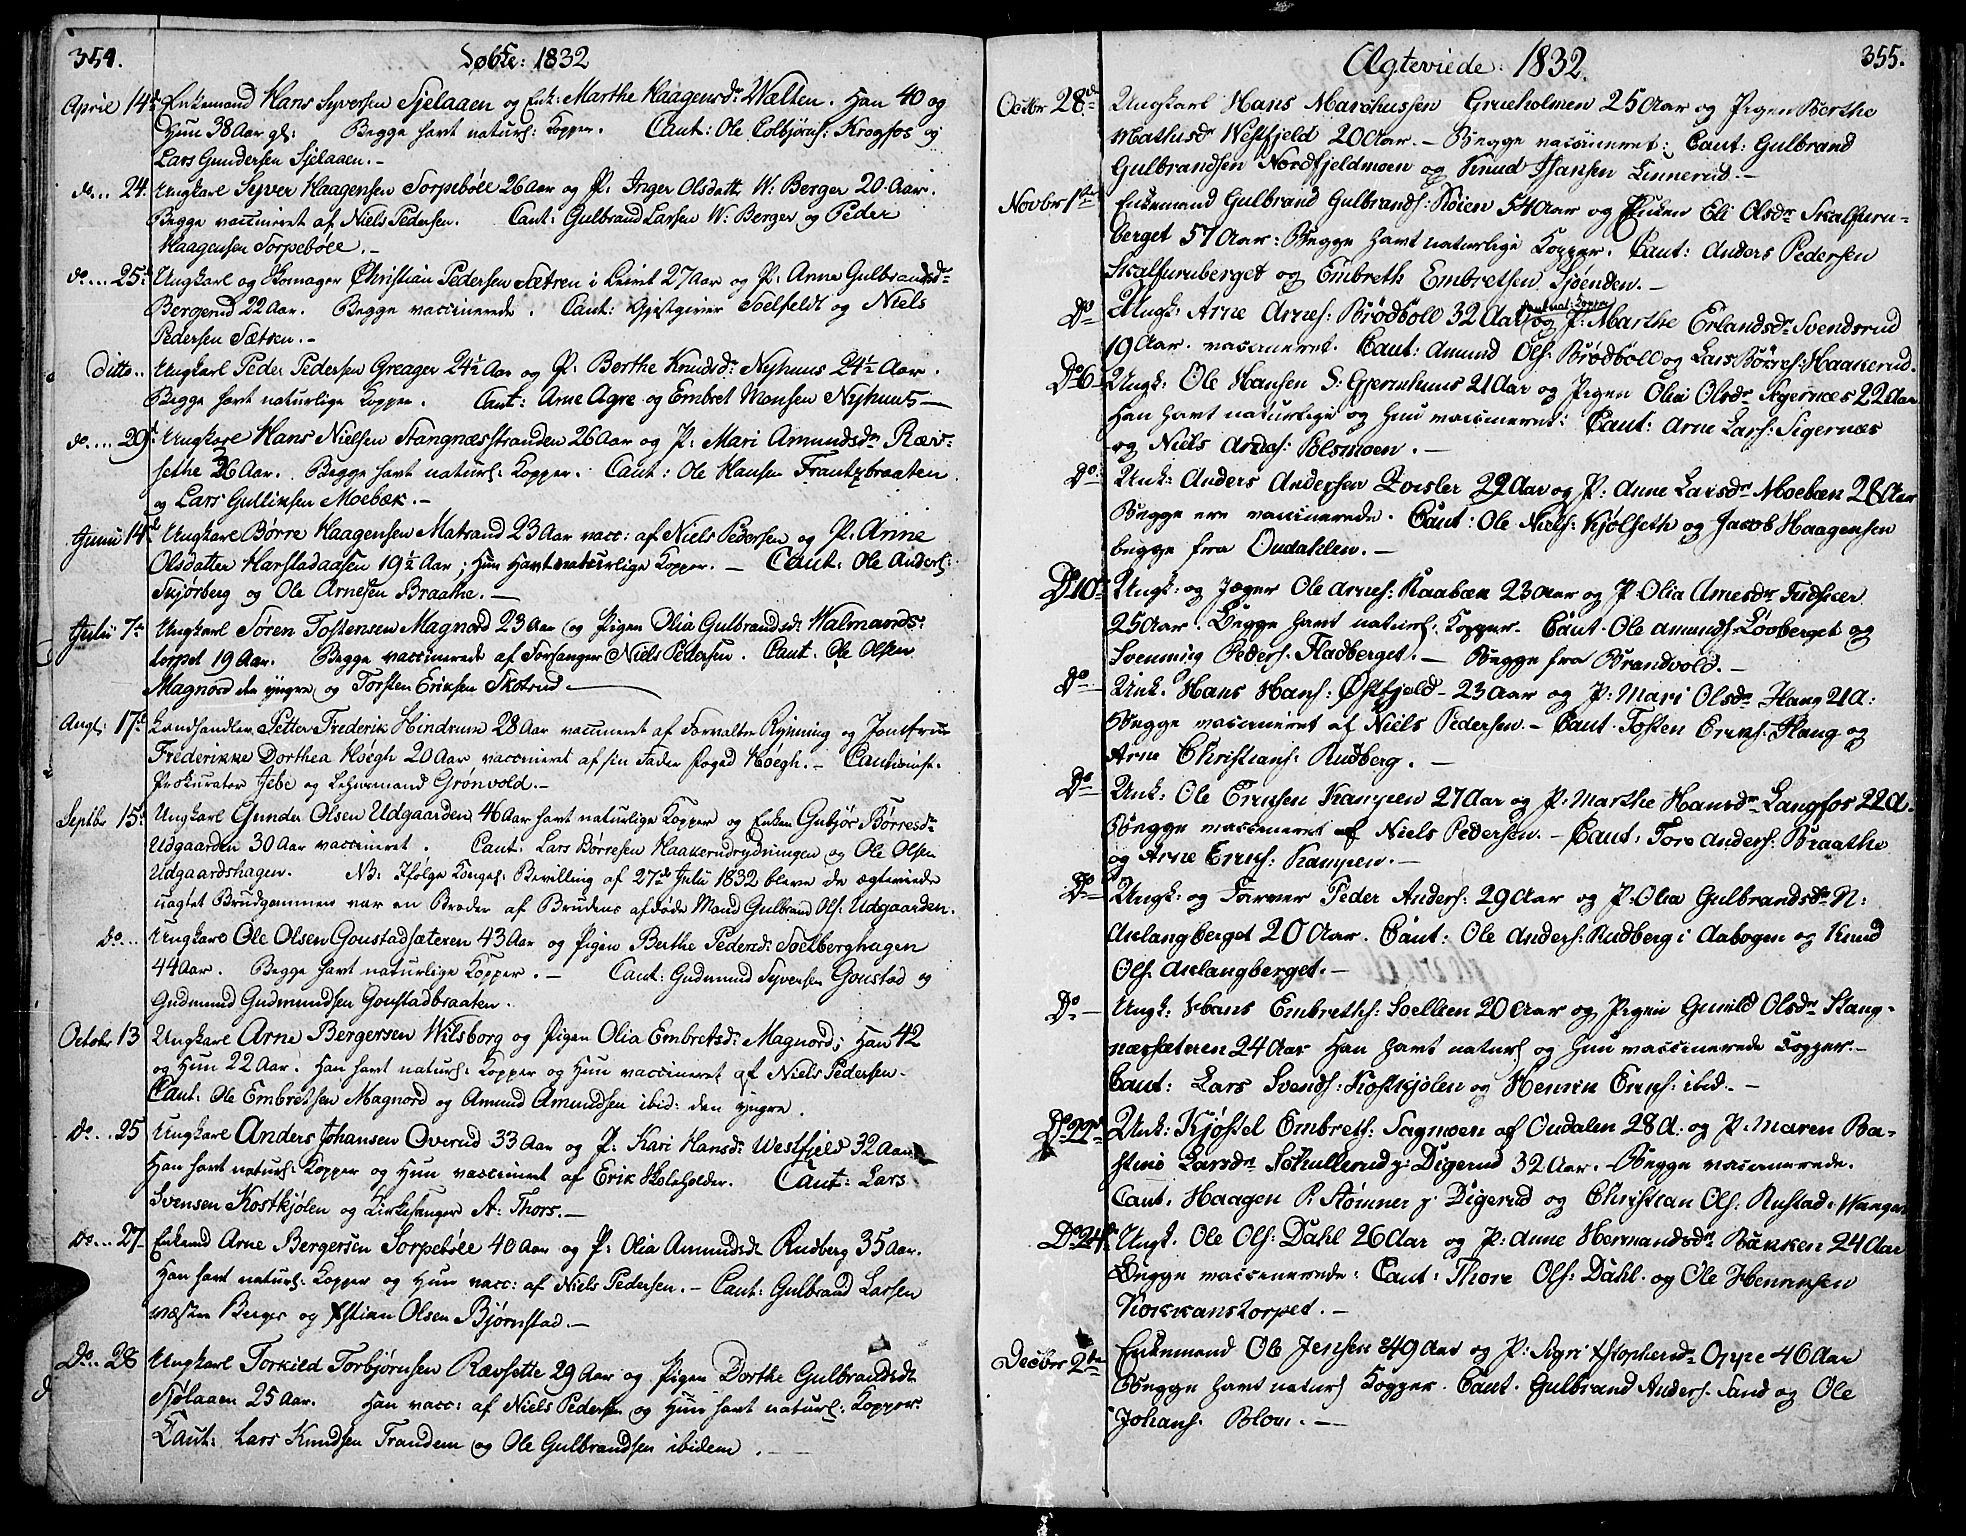 354.
Døbte: 1832
April 14de Enkemand Hans Syversen Sjelaaen og Enk: Marthe Haagensdr Wælten. Han 40 og
Hun 38 Aar gl: Begge havt naturl: Kopper. Caut: Ole Colbjørns: Krogfos og
Lars Gundersen Sjelaaen.-
do... 24. Ungkarl Syver Haagensen Torpeböle 26 Aar og P: Inger Olsdatt W: Berger 20 Aar.
Begge vaccineret af Niels Pedersen. Caut: Gulbrand Larsen W: Berger og Peder
Haagensen Torpeböle.-
do... 25. Ungkarl og Skomager Christian Pedersen Sætren i Leiret 27 Aar og P. Anne Gulbrandsdr
Bergerud 22 Aar. Begge vaccinerede. Caut: Gjestgiver Soelfeldt og Niels
Pedersen Sætren.-
ditto.. Ungkarl Peder Pedersen Greager 24½ Aar og P. Berthe Knudsdr Nyhuus 24½ Aar.
Begge havt naturlige Kopper. Caut: Arne Agre og Embret Monsen Nyhuus-
do.... 29 Ungkarl Hans Nielsen Stangnæsstranden 26 Aar og P: Mari Amundsdr Ræv-
sethe 36 Aar. Begge havt naturl: Kopper. Caut: Ole Hansen Frantzbraaten
og Lars Gulliksen Moebæk.-
Junii 14d Ungkarl Børre Haagensen Matrand 23 Aar vacc: af Niels Pedersen og P. Anne
Olsdatter Harstadaasen 19½ Aar; Hun havt naturlige Kopper.- Caut: Ole Anders:
Skjørberg og Ole Arnesen Braathe.-
Julii 7de Ungkarl Søren Tostensen Magnord 23 Aar og Pigen Olia Gulbrandsdr Walmands-
torpet 19 Aar. Begge vaccinerede af Forsanger Niels Pedersen. Caut. Ole Olsen
Magnord den yngre og Torsten Eriksen Skotrud-
Augl: 17d Landhandler Petter Frederik Hindrum 28 Aar vaccineret af Forvalter Ryning og Jomfrue
Frederikke Dorthea Høegh 20 Aar vaccineret af sin Fader Foged Høegh.- Cautionist:
Prokurator Jebe og Lehnsmand Grønvold.-
Septbr 15. Ungkarl Gunder Olsen Udgaarden 46 Aar havt naturlige Kopper og Enken Gubjör Børresdr
Udgaarden 30 Aar vaccineret. Caut: Lars Børresen Haakerudrydningen og Ole Olsen
Udgaardshagen. NB: Ifølge Konges: Bevilling af 27de Julii 1832 bleve de ægteviede
uagtet Brudgommen var en Broder af Brudens afdøde Mand Gulbrand Ols: Udgaarden.
do... Ungkarl Ole Olsen Goustadsæteren 43 Aar og Pigen Berthe Pedersdr Soelberghagen
44 Aar. Begge havt naturlige Kopper.- Caut: Gudmund Syversen Goustad og
Gudmund Gudmundsen Goustadbraaten.
Octobr 13 Ungkarl Arne Bergersen Wilsborg og Pigen Olia Embretsdr Magnord; Han 42
og Hun 22 Aar. Han havt naturl: Kopper og Hun vaccineret af Niels Pedersen-
Caut: Ole Embretsen Magnord og Amund Amundsen ibid: den yngre.
do... 25 Ungkarl Anders Johansen Overud 33 Aar og P. Kari Hansdr Westfjeld 32 Aar
Han havt naturl: Kopper og Hun vaccineret af Erik Skoleholder. Caut: Lars
Svensen Kostkjølen og Kirkesanger A: Thors.-
do... 27 Enkemd Arne Bergersen Torpeböle 40 Aar og P: Olia Amundsdt Rudberg 35 Aar.
Han havt naturl: Kopper og Hun vacc: af Niels Pedersen.- Caut: Gulbrand Larsen
væstre Berger og Xstian Olsen Bjørnstad.-
Do.. 28 Ungkarl Torkild Torbjørnsen Rævsette 29 Aar og Pigen Dorthe Gulbrandsdt
Sjølaaen 25 Aar. Han vacc: af Niels Pedersen og Hun havt naturl: Kopper.
Caut: Lars Knudsen Trandem og Ole Gulbrandsen ibidem.
355.
Ægteviede: 1832.
Octbr 28de Ungkarl Hans Marthussen Grueholmen 25 Aar og Pigen Berthe
Mathisdr Westfjeld 20 Aar.- Begge vaccineret; Caut: Gulbrand
Gulbrandsen Nordfjeldmoen og Knud Hansen Linnerud.-
Novbr 1ste Enkemand Gulbrand Gulbrands: Røien 54 Aar og Enken Eli Olsdr Skalfuru-
berget 57 Aar: Begge havt naturlige Kopper. Caut: Anders Pedersen
Skalfuruberget og Embreth Embretsen Sjøenden.-
Do Ungk: Arne Arnes: Brødböl 32 Aar havt nat: Kopper og P: Marthe Erlandsdr Svendsrud
19 Aar. vaccineret. Caut: Amund Ols: Brødböl og Lars Børres: Haakerud.
Do 6 Ungk: Ole Hansen S: Gjernhuus 21 Aar og Pigen Olia Olsdr Sigernæs 22 Aar
Han havt naturlige og Hun vaccineret: Caut: Arne Lars: Sigernæs
og Niels Arnes: Polsmoen.-
Do Unk: Anders Andersen Zoisler 29 Aar og P: Anne Larsdr Moebæn 28 Aar
Begge ere vaccinerede. Caut: Ole Niels: Kjølseth og Jacob Haagensen
begge fra Oudahlen.-
Do 10 Ungk: og Jæger Ole Arnes: Kaabæk 23 Aar og P Olia Arnesdr
25 Aar. Begge havt naturl: Kopper. Caut. Ole Amunds: Lövberget og
Svenning Peders: Fladberget.- Begge fra Brandvold.-
Do Unk. Hans Hans: Østfjeld 23 Aar og P: Mari Olsdr Haug 21 A:
Begge vaccineret af Niels Pedersen.- Caut. Tosten Eriks: Haug og
Arne Christians: Rudberg.-
Do Unk: Ole Ericsen Kampen 27 Aar og P: Marthe Hansdr Langfos 22 A.
Begge vaccineret af Niels Pedersen.- Caut: Tore Anders: Braathe
og Arne Erics: Kampen.-
Do Ungk: og Farver Peder Anders: 29 Aar og P: Olia Gulbrandsdr N:
Aklangberget 20 Aar. Caut: Ole Anders: Rudberg i Aabogen og Knud
Ols. Aklangberget.-
Do Ungk: Hans Embreths: Soellien 20 Aar og Pigen Gunild Olsdr Stang-
næssæteren 24 Aar Han havt naturl og Hun vaccinerede Kopper.-
Caut: Lars Svends: Kostkjølen og Henrik Erics: ibid.-
Do 22d Unk: Kjøstel Embreths: Sagmoen af Oudalen 28 A. og P. Maren Ba-
stine Larsdr Skullerud p: Digerud 32 Aar.- Begge vaccinerede.
Caut. Haagen P. Stømner p. Digerud og Christian Ols: Rustad i Wanger
Do 24d Ungk. Ole Ols: Dahl 26 Aar og P: Anne Hermandsdr Bakken 24 Aar
Begge vaccinerede: Caut: Thore Ols: Dahl. og Ole Henriksen
Kokkanstorpet.-
Decbr 2de Enkemand Ole Jensen 49 Aar og P: Sigri Xstophersdr Oppe 46 Aar
Begge havt naturl Kopper. Caut. Gulbrand Anders: Sand og Ole
Johans: Blom.-